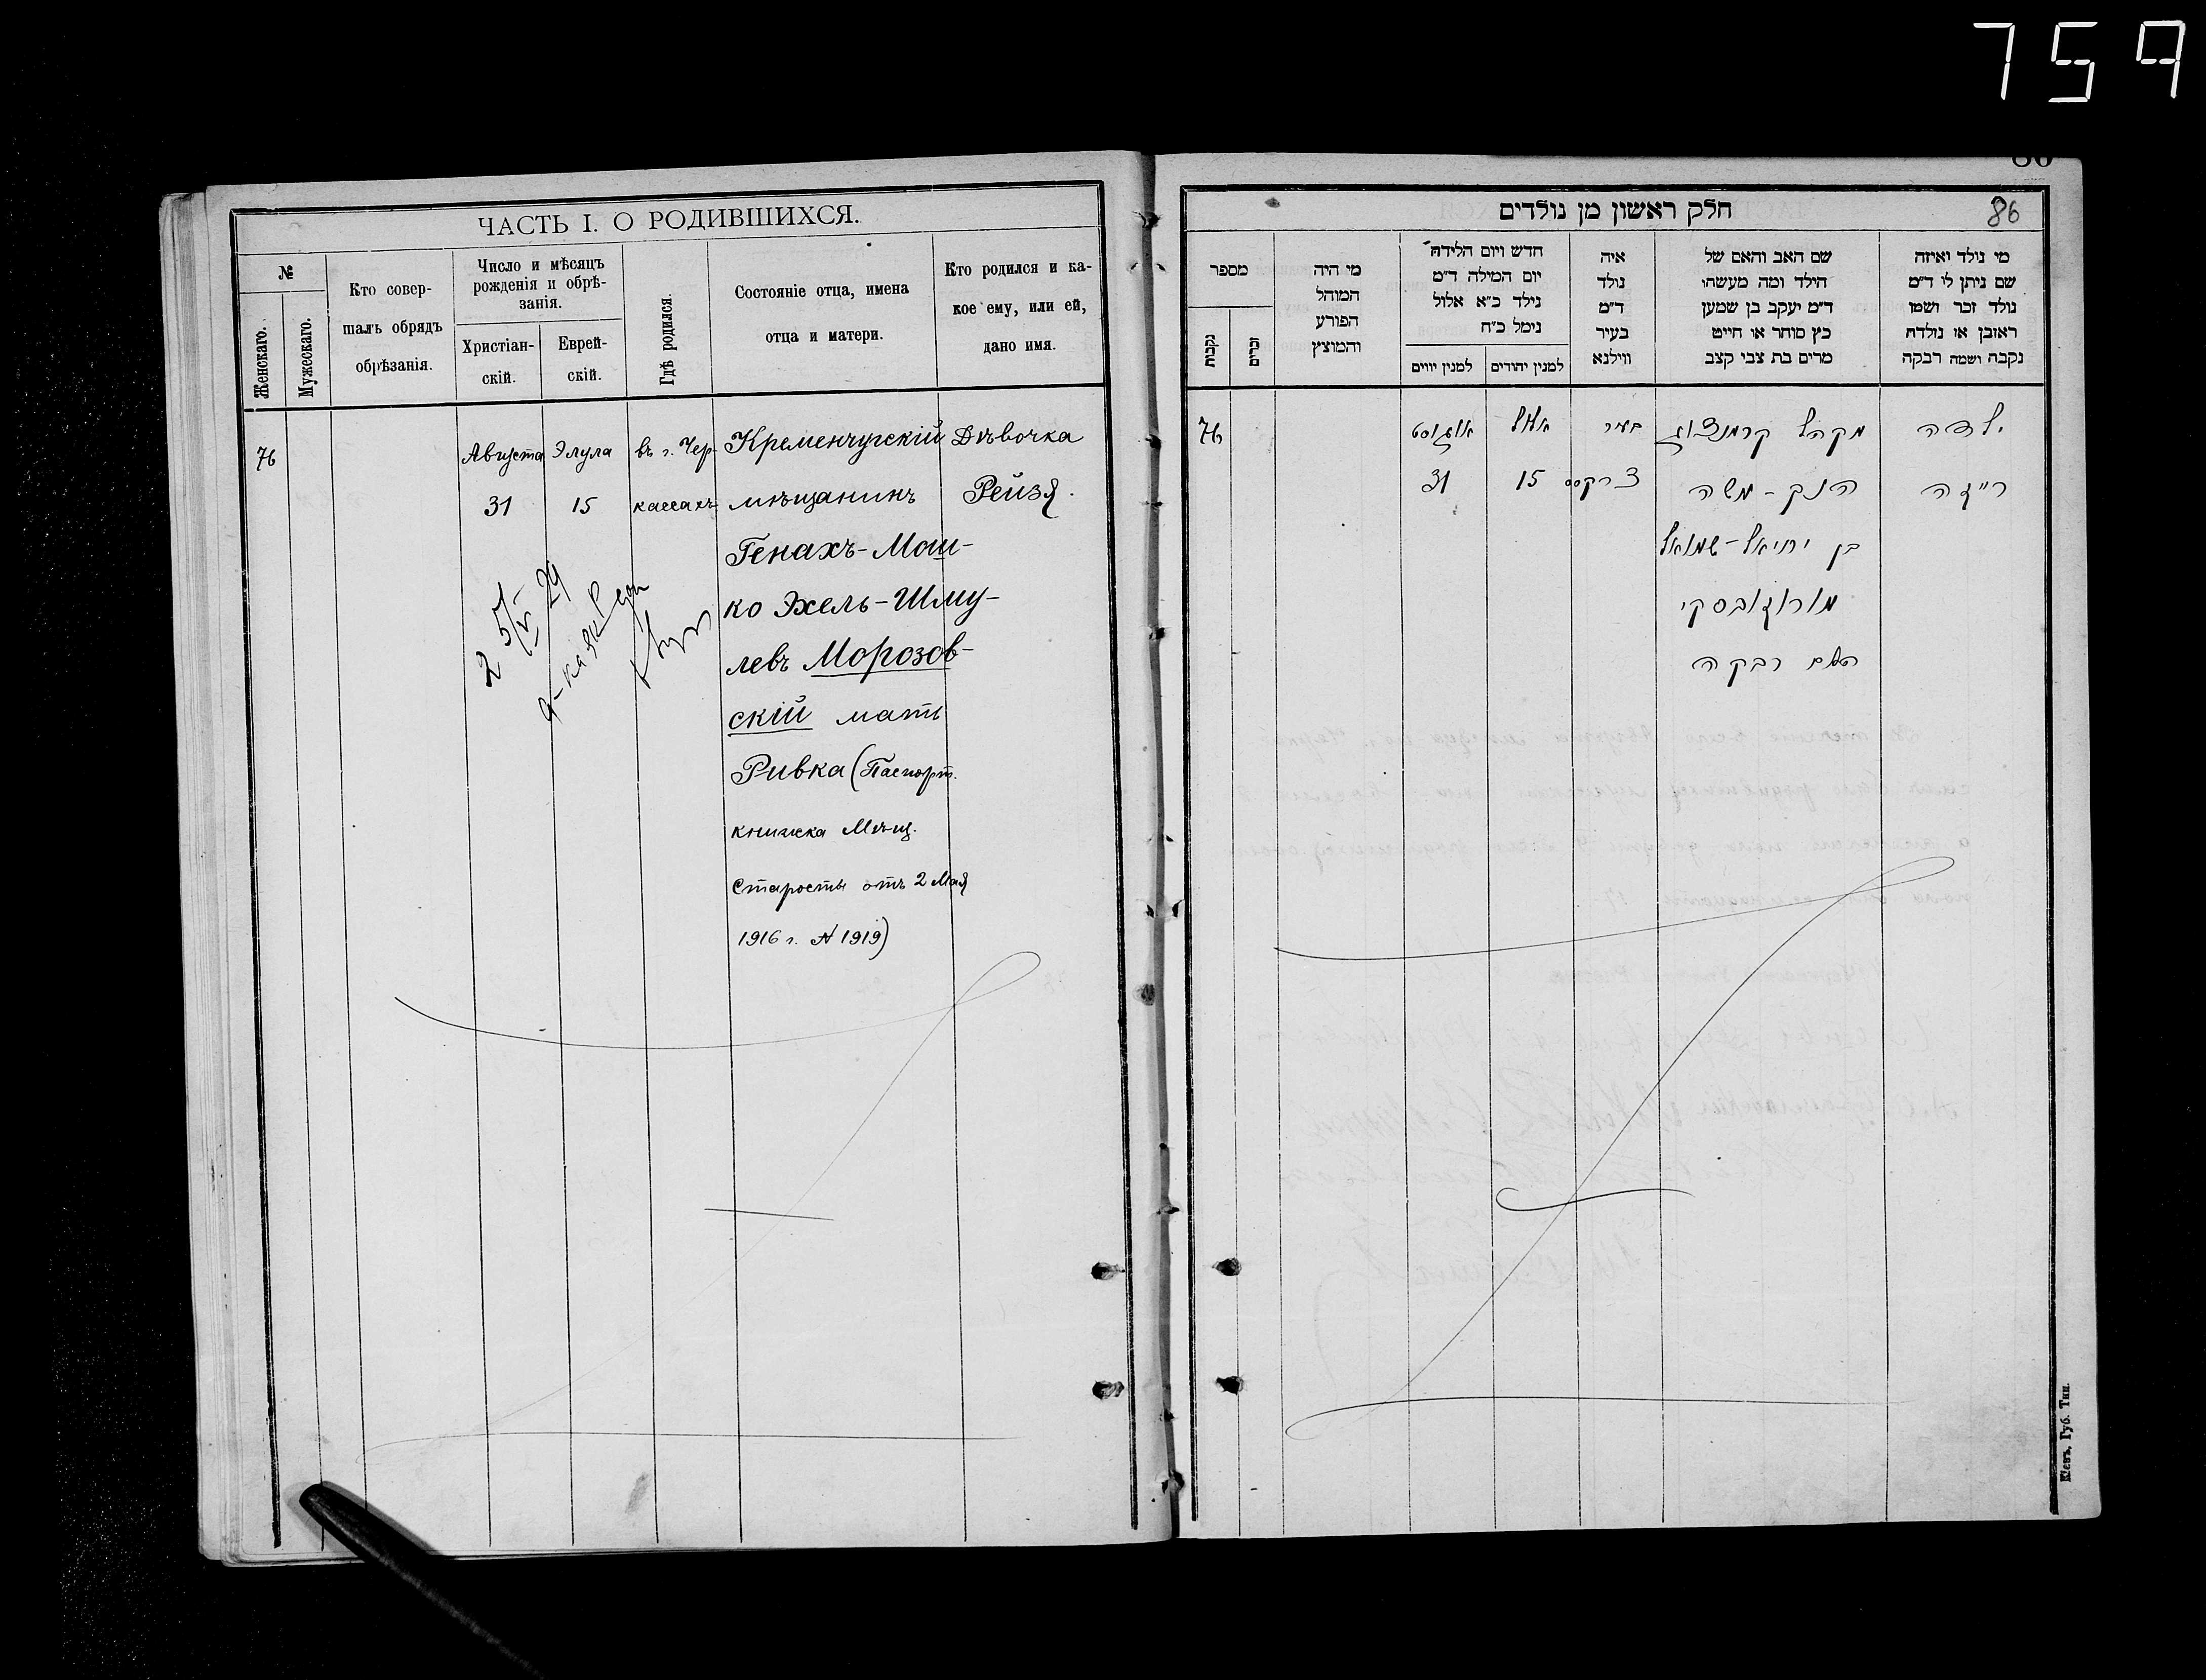 759
ЧАСТЬ I. О РОДИВШИХСЯ.
№
Женскаго.
Мужескаго.
Кто совер-
шалъ обрядъ
обрѣзанія.
Число и мѣсяцъ
рожденія и обрѣ-
занія.
Христіан-
скій.
Еврей-
скій.
Гдѣ родился.
Состояніе отца, имена
отца и матери.
Кто родился и ка-
кое ему, или ей,
дано имя.
76
Августа
31
Элула
15
въ г. Чер-
кассахъ
Кременчугскій
мѣщанинъ
Генахъ-Мош-
ко Эхель-Шму-
левъ Морозов-
скій мать
Ривка (Паспорт.
книжка Мѣщ.
Старосты отъ 2 Мая
1916 г. № 1919)
Дѣвочка
Рейзя.
2 5/V 29
חלק ראשון מן נולדים
86
מי נולד ואיזה
שם ניתן לו ד״מ
נולד זכר ושמו
ראובן או נולדה
נקבה ושמה רבקה
שם האב והאם של
הילד ומה מעשהו
ד״מ יעקב בן שמען
כץ סוחר או חייט
מרים בת צבי קצב
איה
נולד
ד״מ
בעיר
ווילנא
חדש ויום הלידה
יום המילה ד״מ
נילד כ״א אלול
נימל כ״ח
למנין יהודים
למנין יוים
מי היה
המוהל
הפורע
והמוצץ
מספר
זכרים
נקבות
ילדה
רייזה
מקהל קרמנצוג
הנק-משה
בן יחיאל-שמואל
מורוזובסקי
האם רבקה
בעיר
צרקסס
אלול
15
אוגוסט
31
76
Кіевъ, Губ. Тип.